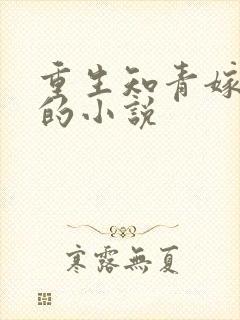 重生知青嫁
的小說
寒露無夏